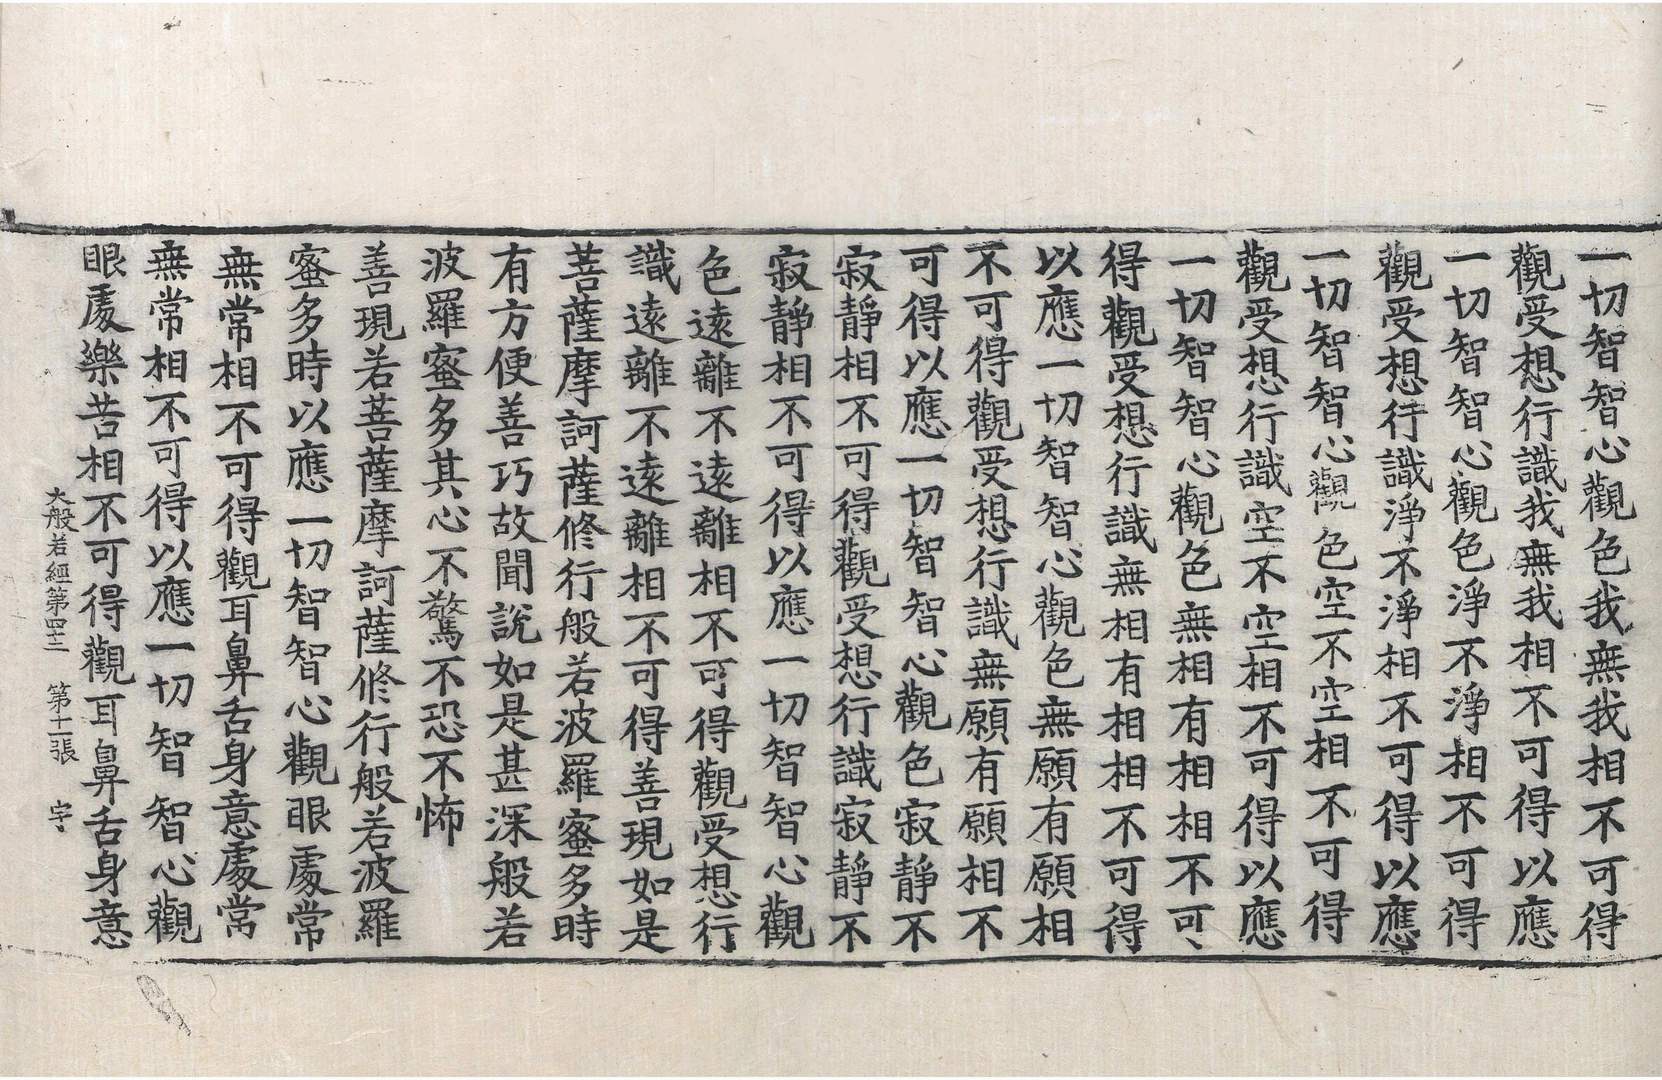 一切智智心觀色我無我相不可得
觀受想行識我無我相不可得以應
一切智智心觀色淨不淨相不可得
觀受想行識淨不淨相不可得以應
一切智智心觀色空不空相不可得
觀受想行識空不空相不可得以應
一切智智心觀色無相有相相不可
得觀受想行識無相有相相不可得
以應一切智智心觀色無願有願相
不可得觀受想行識無願有願相不
可得以應一切智智心觀色寂靜不
寂靜相不可得觀受想行識寂靜不
寂靜相不可得以應一切智智心觀
色遠離不遠離相不可得觀受想行
識遠離不遠離相不可得善現如是
菩薩摩訶薩修行般若波羅蜜多時
有方便善巧故聞說如是甚深般若
波羅蜜多其心不驚不恐不怖
善現若菩薩摩訶薩修行般若波羅
蜜多時以應一切智智心觀眼處常
無常相不可得觀耳鼻舌身意處常
無常相不可得以應一切智智心觀
眼處樂苦相不可得觀耳鼻舌身意
大般若經第四十三 第十一張 字